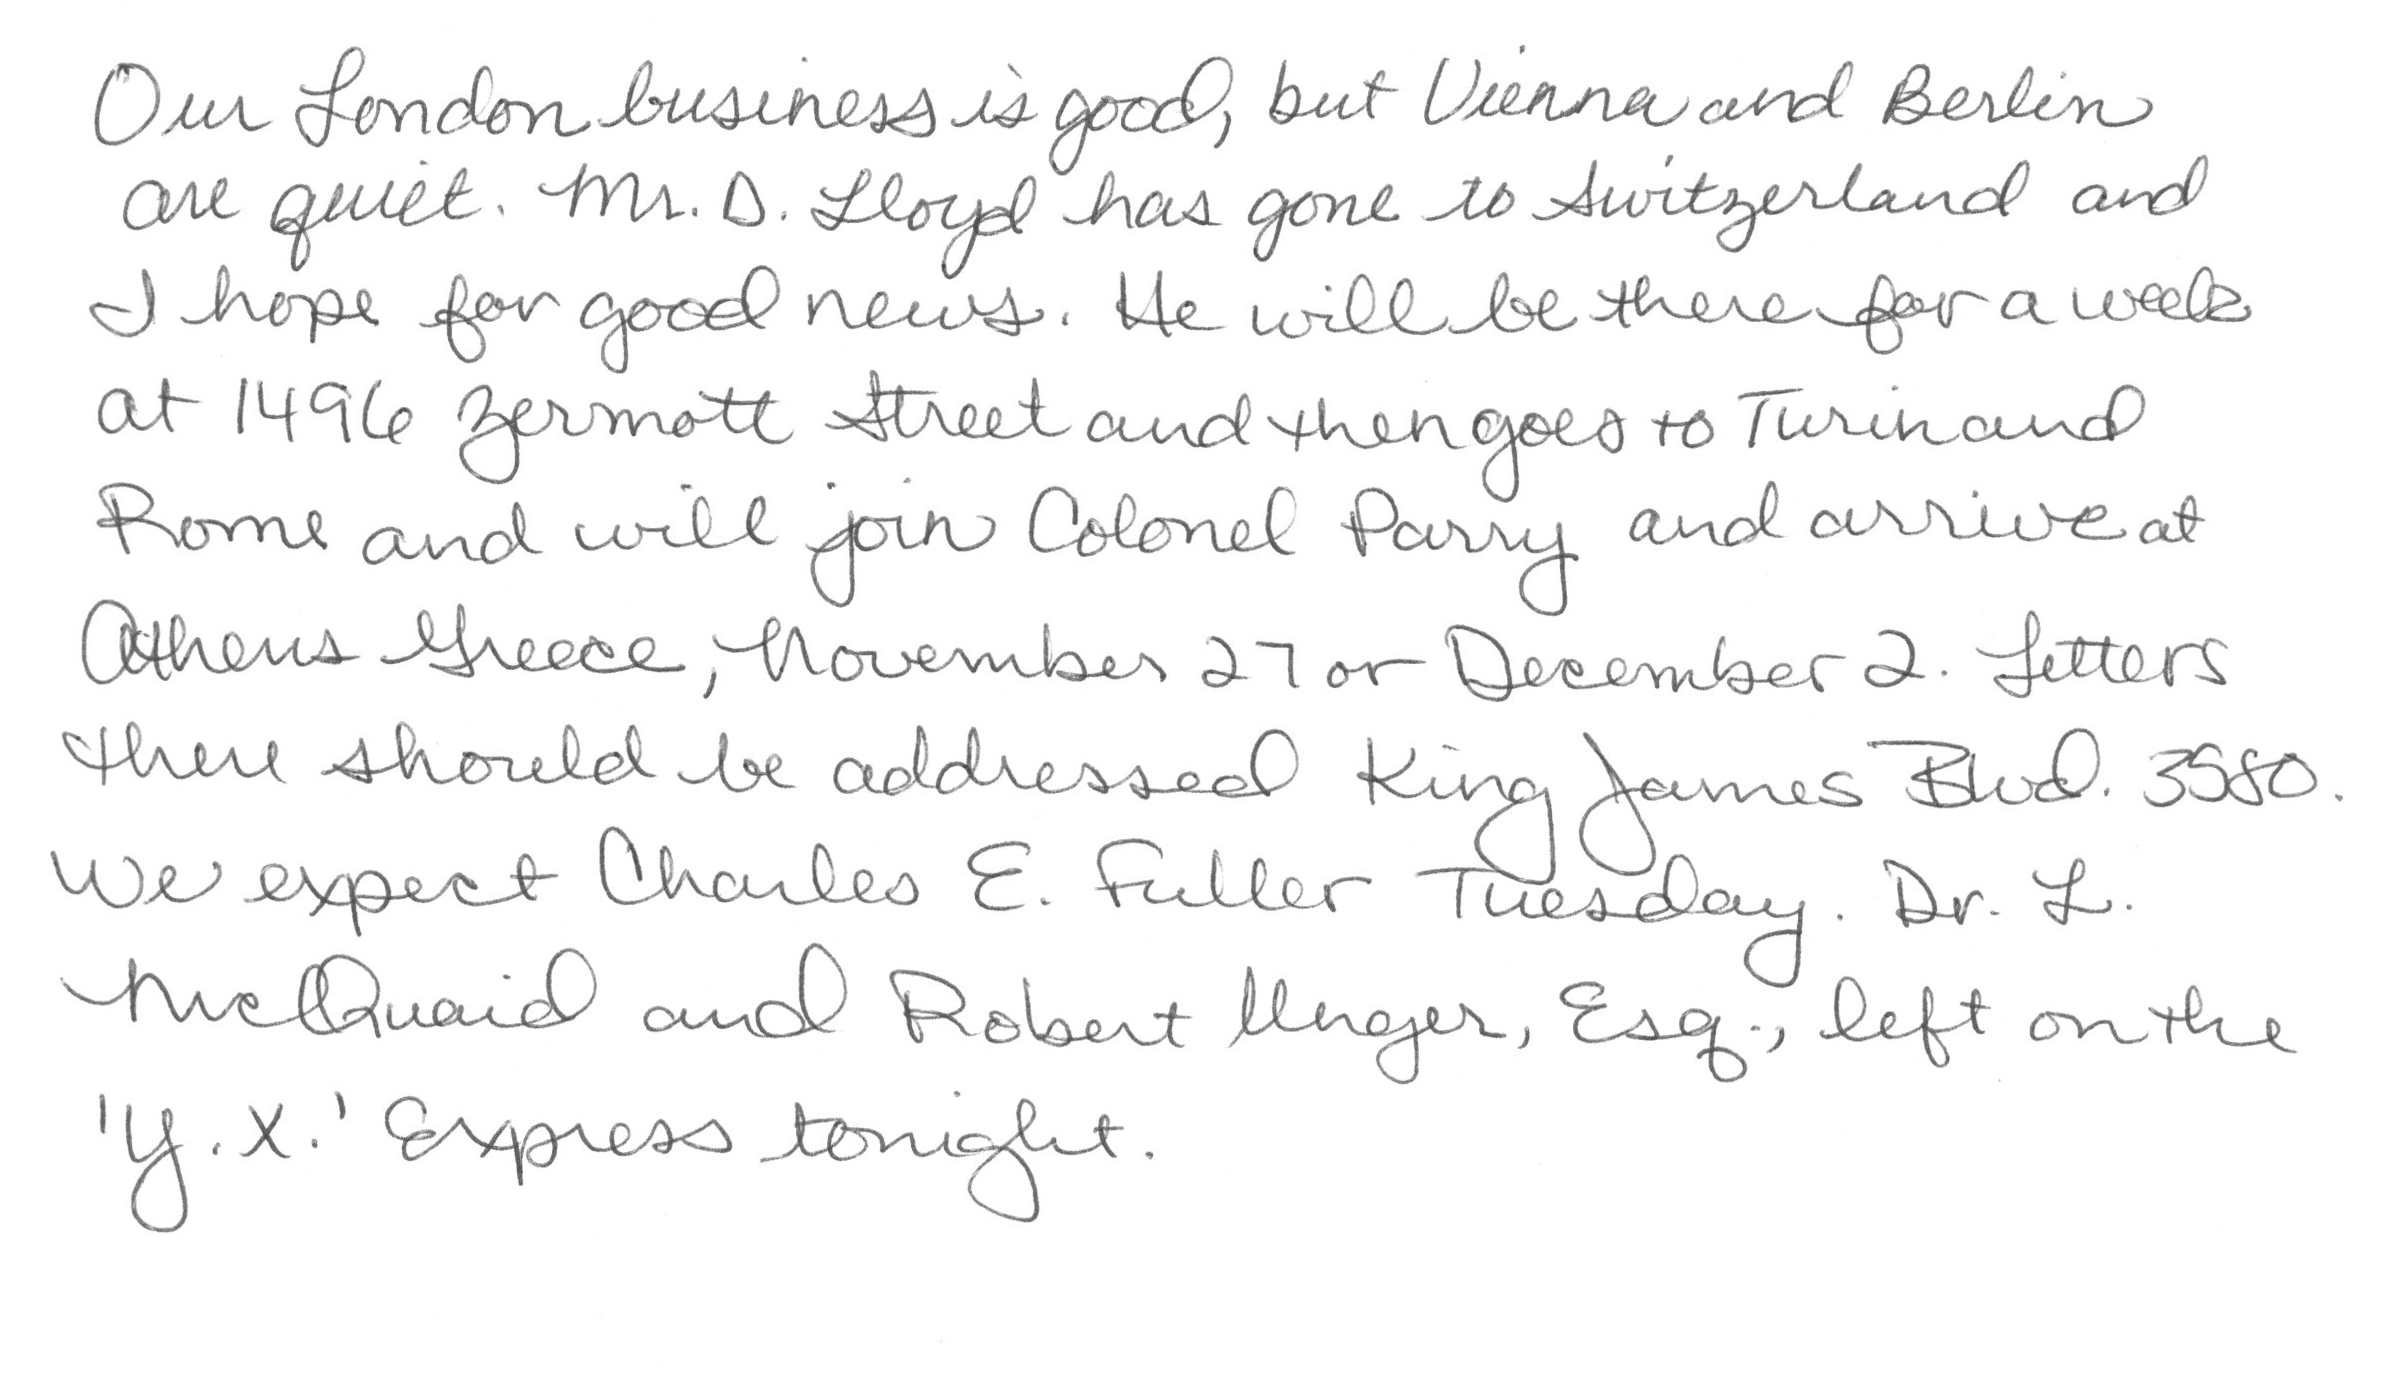 Our London business is good, but Vienna and Berlin
are quiet. Mr. D. Lloyd has gone to Switzerland and
I hope for good news. He will be there for a week
at 1496 Zermott Street and then goes to Turin and
Rome and will join Colonel Parry and arrive at
Athens Greece, November 27 or December 2. Letters
there should be addressed King James Blvd. 3580.
We expect Charles E. Fuller Tuesday. Dr. L.
McQuaid and Robert Unger, Esq., left on the
'Y.X.' Express tonight.